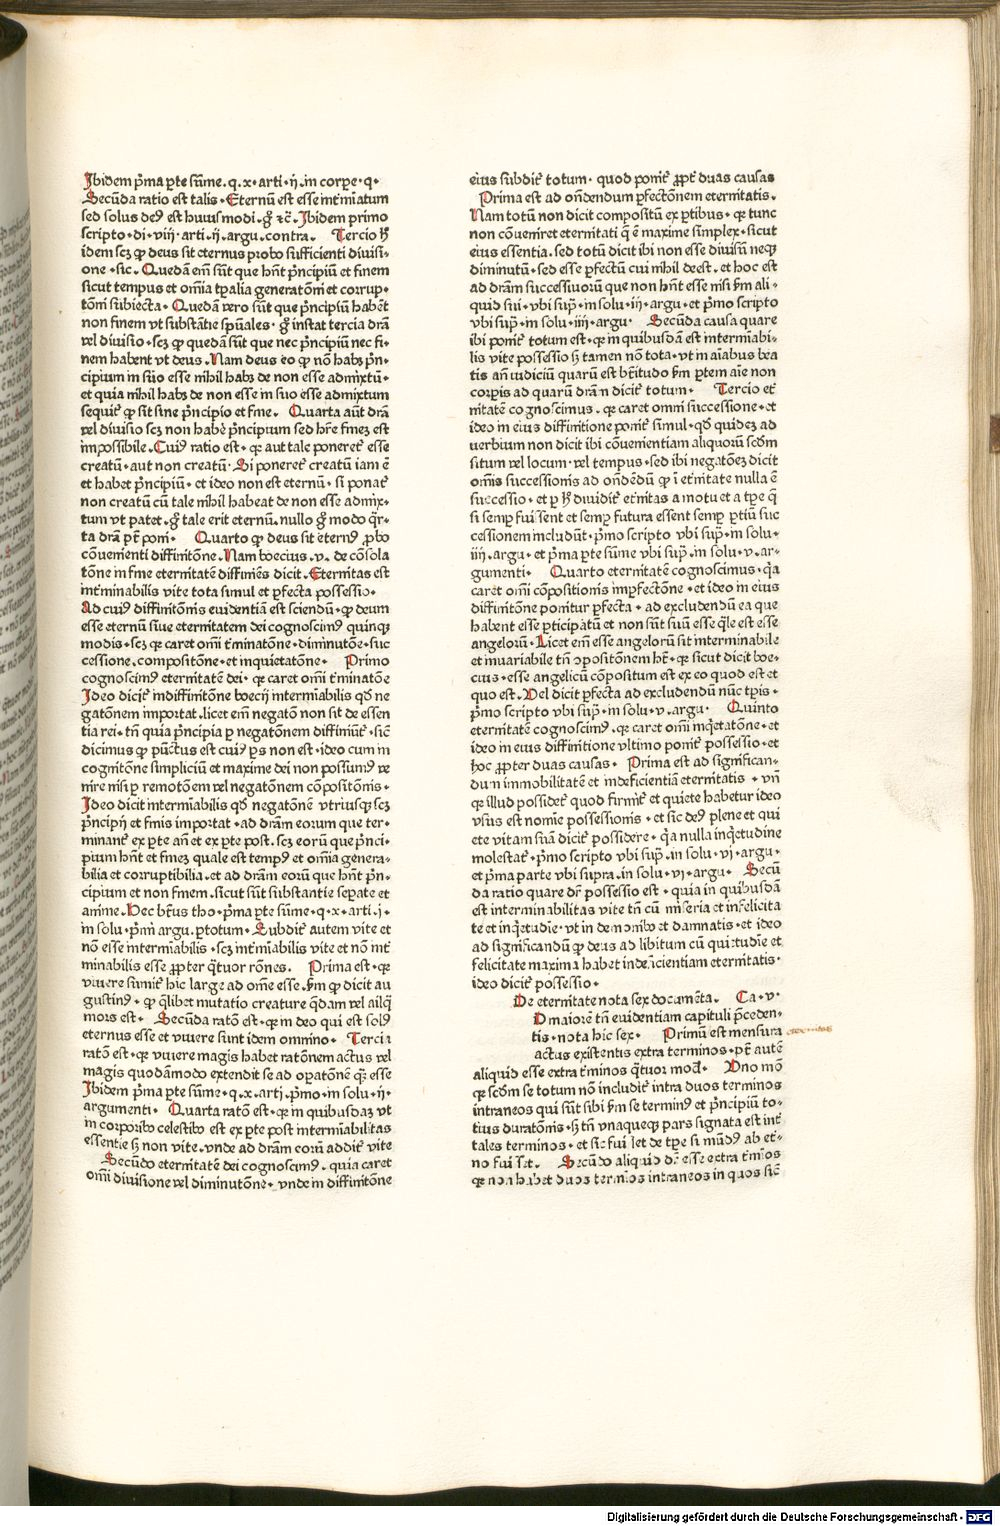 Ibidem p̄ma ꝑte sūme. q. x. arti. ij. in corpe. q.
Secūda ratio est talis. Eternū est esse int̄miatum
sed solus deꝰ est huiusmodi. gͦ ⁊c̄. Ibidem primo
scripto. di. viij. arti. ij. argu. contra. Tercio h̄
idem scꝫ ꝙ deus sit eternus probo sufficienti diuisi-
one. sic. Quedā em̄ sūt que hn̄t p̄ncipiū et finem
sicut tempus et om̄ia tꝑalia generatōni et corrup-
tōni subiecta. Quedā vero sūt que p̄ncipiū habēt
non finem vt substātie spūales. gͦ instat tercia drā
vel diuisio. scꝫ ꝙ quedā sūt que nec p̄ncipiū nec fi-
nem habent vt deus. Nam deus eo ꝙ nō habꝫ p̄n-
cipium in suo esse nihil habꝫ de non esse admixtū.
et quia nihil habꝫ de non esse in suo esse admixtum
sequit̄ ꝙ sit sine p̄ncipio et fine. Quarta aūt drā
vel diuisio scꝫ non habē p̄ncipium sed hr̄e fineꝫ est
impossibile. Cuiꝰ ratio est. qꝛ aut tale poneret̄ esse
creatū. aut non creatū. Si poneret̄ creatū iam ē
et habet p̄ncipiū. et ideo non est eternū. si ponat̄
non creatū cū tale nihil habeat de non esse admix-
tum vt patet. gͦ tale erit eternū. nullo gͦ modo q̄r-
ta drā pt̄ poni. Quarto ꝙ deus sit eternꝰ ꝓbo
cōuenienti diffinitōne. Nam boecius. v. de cōsola
tōne in fine eternitatē diffiniēs dicit. Eternitas est
int̄minabilis vite tota simul et ꝑfecta possessio.
Ad cuiꝰ diffinitōnis euidentiā est sciendū. ꝙ deum
esse eternū siue eternitatem dei cognoscimꝰ quinqꝫ
modis. scꝫ qꝛ caret om̄i t̄minatōne. diminutōne. suc
cessione. compositōne. et inquietatōne. Primo
cognoscimꝰ eternitatē dei. qꝛ caret om̄i t̄minatōe
Ideo dicit̄ in diffinitōne boecij intermiabilis qd̄ ne
gatōnem importat. licet em̄ negatō non sit de essen
tia rei. tn̄ quia p̄ncipia ꝑ negatōnem diffiniūt̄. sic̄
dicimus ꝙ pūctus est cuiꝰ ps non est. ideo cum in
cognitōne simpliciū et maxime dei non possumꝰ ve
nire nisi ꝑ remotōem vel negatōnem cōpositōnis.
Ideo dicit intermiabilis qd̄ negatōnē vtriusqꝫ scꝫ
p̄ncipij et finis importat. ad drām eorum que ter-
minant̄ ex ꝑte an̄ et ex ꝑte post. scꝫ eorū que p̄nci-
pium hn̄t et fineꝫ quale est tempꝰ et om̄ia genera-
bilia et corruptibilia. et ad drām eorū que hn̄t p̄n-
cipium et non finem. sicut sūt substantie seꝑate et
anime. Hec bt̄us tho. p̄ma ꝑte sūme. q. x. arti. j.
in solu. p̄mi argu. ꝑtotum. Subdit̄ autem vite et
nō esse intermiabilis. scꝫ int̄miabilis vite et nō int̄
minabilis esse ꝓpter q̄tuor rōnes. Prima est. qꝛ
viuere sumit̄ hic large ad om̄e esse. s̄m ꝙ dicit au
gustinꝰ. ꝙ q̄libet mutatio creature q̄dam vel aliq̄
mors est. Secūda ratō est. qꝛ in deo qui est solꝰ
eternus esse et viuere sunt idem omnino. Tercia
ratō est. qꝛ viuere magis habet ratōnem actus vel
magis quodāmodo extendit se ad oꝑatōnē qͣꝫ esse
Ibidem p̄ma ꝑte sūme. q. x. arti. pͥmo. in solu. ij.
argumenti. Quarta ratō est. qꝛ in quibusdaꝫ vt
in corporibꝰ celestibꝰ est ex ꝑte post intermiabilitas
essentie sꝫ non vite. vnde ad drām eorū addit̄ vite
Secūdo eternitatē dei cognoscimꝰ. quia caret
om̄i diuisione vel diminutōne. vnde in diffinitōne
eius subdit̄ totum. quod ponit̄ ꝓpt̄ duas causas
Prima est ad on̄dendum ꝑfectōnem eternitatis.
Nam totū non dicit compositū ex ꝑtibus. qꝛ tunc
non cōueniret eternitati q̄ ē maxime simplex. sicut
eius essentia. sed totū dicit ibi non esse diuisū neqꝫ
diminutū. sed esse ꝑfectū cui nihil deest. et hoc est
ad drām successiuorū que non hn̄t esse nisi s̄m ali-
quid sui. vbi supͣ. in solu. iij. argu. et pͥmo scripto
vbi supͣ. in solu. iiij. argu. Secūda causa quare
ibi ponit̄ totum est. qꝛ in quibusdā est intermiabi-
lis vite possessio sꝫ tamen nō tota. vt in aīabus bea
tis an̄ iudiciū quarū est bt̄itudo s̄m ꝑtem aīe non
corꝑis ad quarū drām dicit̄ totum. Tercio et̄
nitatē cognoscimus. qꝛ caret omni successione. et
ideo in eius diffinitione ponit̄ simul. qd̄ quideꝫ ad
verbium non dicit ibi cōuenientiam aliquorū scd̄m
situm vel locum. vel tempus. sed ibi negatōeꝫ dicit
om̄is successionis ad on̄dēdū ꝙ ī et̄nitate nulla ē
successio. et ꝑ h̄ diuidit̄ et̄nitas a motu et a tꝑe q̄
si semꝑ fuissent et semꝑ futura essent semꝑ ꝑtiū suc
cessionem includūt. pͥmo scripto vbi supͣ. in solu.
iiij. argu. et pͥma ꝑte sūme vbi supͣ. in solu. v. ar-
gumenti. Quarto eternitatē cognoscimus. qͥa
caret om̄i cōpositionis imꝑfectōne. et ideo in eius
diffinitōne ponitur ꝑfecta. ad excludendū ea que
habent esse ꝑticipatū et non sūt suū esse q̄le est esse
angelorū. Licet em̄ esse angelorū sit interminabile
et inuariabile tn̄ ꝯpositōnem hēt. qꝛ sicut dicit boe-
cius. esse angelicū cōpositum est ex eo quod est et
quo est. Vel dicit ꝑfecta ad excludendū nūc tꝑis.
pͥmo scripto vbi supͣ. in solu. v. argu. Quinto
eternitatē cognoscimꝰ. qꝛ caret om̄i inq̄etatōne. et
ideo in eius diffinitione vltimo ponit̄ possessio. et
hoc ꝓpter duas causas. Prima est ad significan-
dum immobilitatē et indeficientiā eternitatis. vn̄
qꝛ illud possidet̄ quod firmit̄ et quiete habetur ideo
vsus est nomīe possessionis. et sic deꝰ plene et qui
ete vitam suā dicit̄ possidere. qͥa nulla inq̄etudine
molestat̄. pͥmo scripto vbi supͣ. in solu. vj. argu.
et pͥma parte vbi supra. in solu. vj. argu. Secū
da ratio quare dr̄ possessio est. quia in quibusdā
est interminabilitas vite tn̄ cū miseria et infelicita
te et inq̄etudīe. vt in demonibꝰ et damnatis. et ideo
ad significandū ꝙ deus ad libitum cū quietudīe et
felicitate maxima habet indeficientiam eternitatis.
ideo dicit̄ possessio.
De eternitate nota sex documēta. Ca. v.
D maiorē tn̄ euidentiam capituli p̄ceden-
tis. nota hic sex. Primū est mensura
actus existentis extra terminos. pt̄ autē
aliquid esse extra t̄minos q̄tuor mod̄. Vno mō
qꝛ scd̄m se totum nō includit̄ intra duos terminos
intraneos qui sūt sibi s̄m se terminꝰ et p̄ncipiū to-
tius duratōnis. sꝫ tn̄ vnaqueqꝫ pars signata est int̄
tales terminos. et sic fuisset de tꝑe si mūdꝰ ab et̄-
no fuisset. Secūdo aliquid dr̄ esse extra t̄mīos
qꝛ non habet duos terminos intraneos in quos sic̄
Digitalisierung gefördert durch die Deutsche Forschungsgemeinschaft - DFG